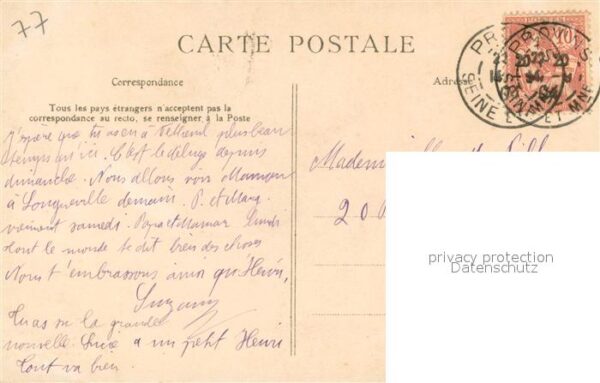 77
CARTE POSTALE
Correspondance
Adresse
Tous les pays étrangers n'acceptent pas la
correspondance au recto, se renseigner à la Poste
PROVINS
SEINE ET MNE
J'espère que tu as en plus beau
temps qu'ici. C'est le déluge depuis
dimanche. Nous allons voir Maman
à Longueville demain. P. et Marg.
viennent samedi. Papa et Maman lundi
dont le monde te dit bien des choses
Nous t'embrassons ainsi qu'Henri,
Suzanne
Tu as su la grande
nouvelle. Luce a un petit Henri
tout va bien
Mademoiselle de
20
privacy protection
Datenschutz